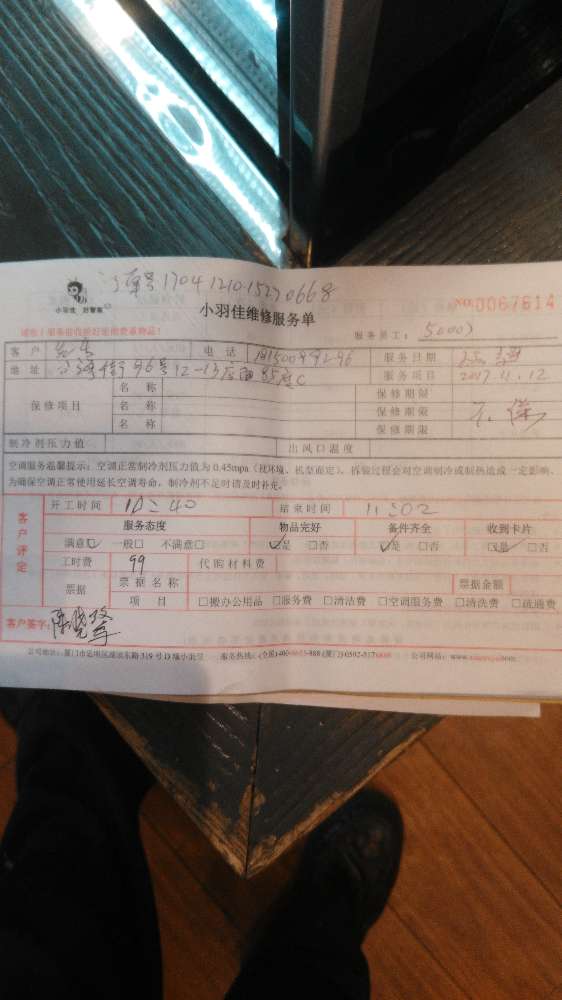 订单号170412101527 0668
小羽佳 好管家
小羽佳维修服务单
NO:0067614
服务员工:
客户 电话 服务日期
地址 96号12-13店面85度C 服务项目 2017.4.12
保修项目 名称 保修期限 不保
名称 保修期限
名称 保修期限
制冷剂压力值 出风口温度
空调服务温馨提示:空调正常制冷剂压力值为0.45mpa(视环境、机型而定)。拆装过程会对空调制冷或制热造成一定影响,
为确保空调正常使用延长空调寿命,制冷剂不足时请及时补充。
客户评定
开工时间 10:40 结束时间 11:02
服务态度 物品完好 备件齐全 收到卡片
满意☑ 一般□ 不满意□ ☑是 □否 ☑是 □否 ☑是 □否
工时费 99 代购材料费
票据 票据名称 票据金额
项目 □搬办公用品 □服务费 □清洁费 □空调服务费 □清洗费 □疏通费
客户签字:
公司地址:厦门市思明区湖滨东路319号D幢 服务热线:(全国)400 (厦门)0592-517 公司网站:www.